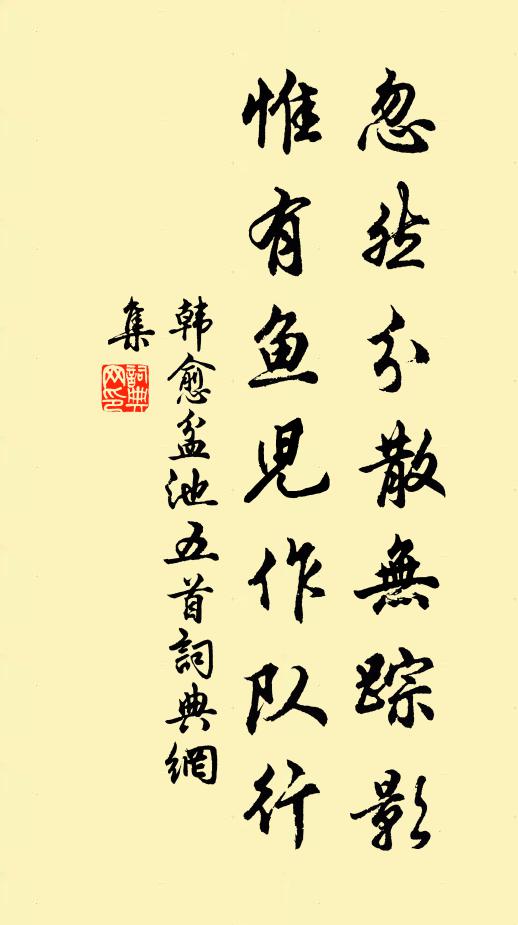 忽然分散無踪影
惟有鱼児作队行
韩愈盆池五首詞典網
集
詞典
网印